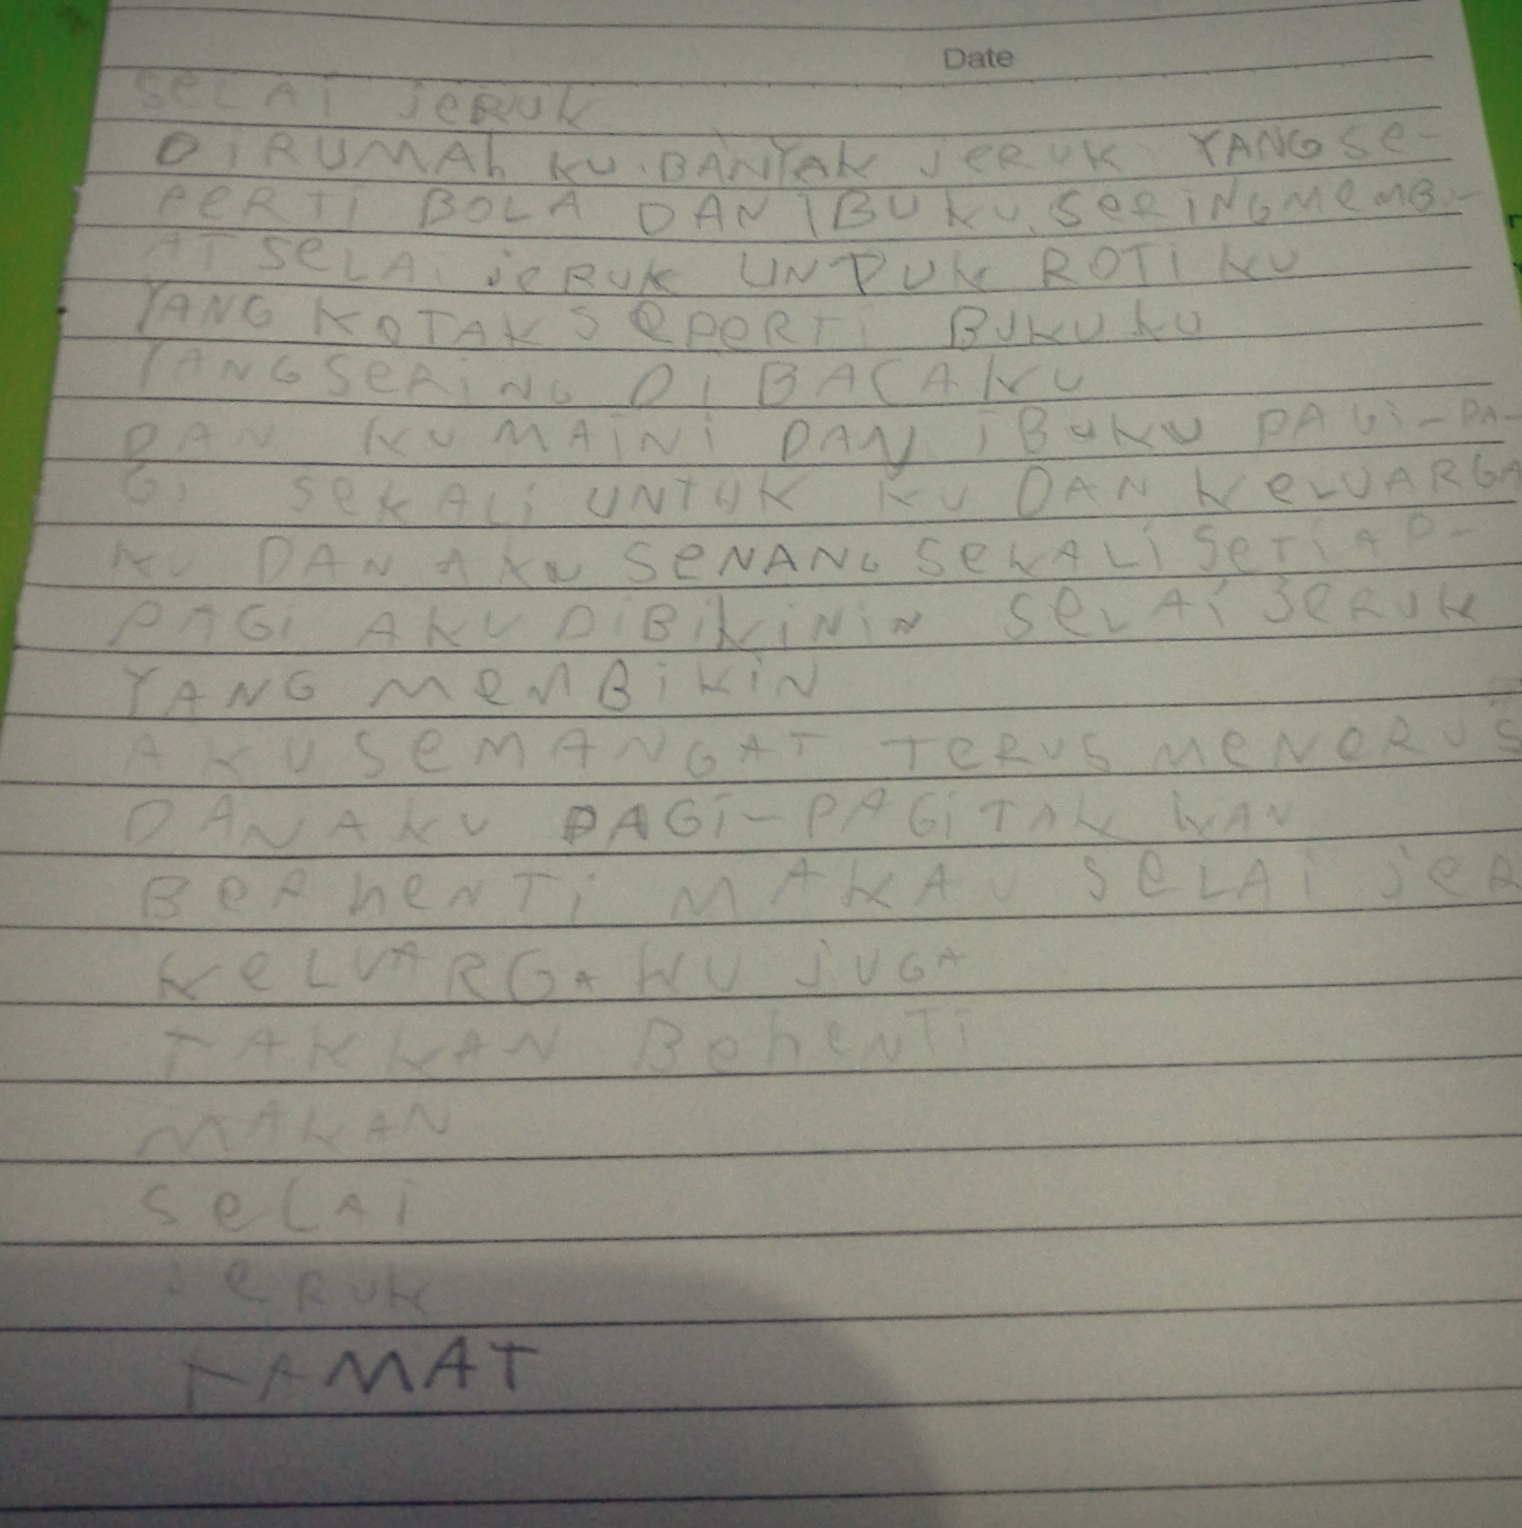 Date
SeLAi jeRUK
DiRUMAh KU BANYAK jeRUK YANG Se-
PeRTi BOLA DAN IBUKU SeRiNG MeMBU-
AT SeLAi jeRUK UNTUK ROTi KU
YANG KOTAK SePeRTi BUKU KU
YANG SeRiNG Di BACA KU
DAN KU MAiNi DAN iBUKU PAGi-PA-
Gi SeKALi UNTUK KU DAN KeLUARGA
KU DAN AKU SeNANG SeKALi SeTiAP-
PAGi AKU DiBiKiNiN SeLAi jeRUK
YANG MeMBiKiN
AKU SeMANGAT TeRUS MeNeRUS
DAN AKU PAGi-PAGi TAK KAN
BeRheNTi MAKAN SeLAi jeR
KeLUARGA KU jUGA
TAK KAN BeheNTi
MAKAN
SeLAi
jeRUK
TAMAT